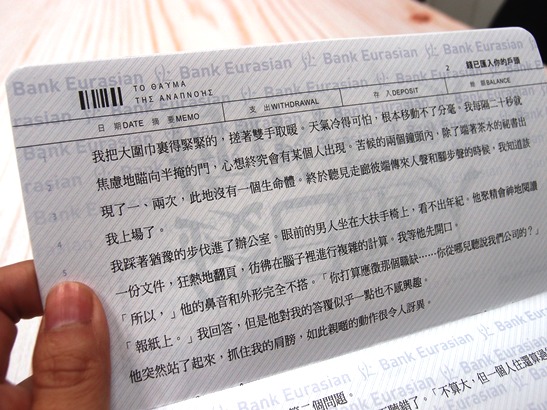 Bank Eurasian Bank Eurasian Bank Eurasian
ΤΟ ΘΑΥΜΑ
ΤΗΣ ΑΝΑΠΝΟΗΣ
2 錢已匯入你的戶頭
日 期DATE 摘 要MEMO 支 出WITHDRAWAL 存 入DEPOSIT 餘 額BALANCE
我把大圍巾裹得緊緊的，搓著雙手取暖。天氣冷得可怕，根本移動不了分毫。我每隔二十秒就
焦慮地瞄向半掩的門，心想終究會有某個人出現。苦候的兩個鐘頭內，除了端著茶水的祕書出
現了一、兩次，此地沒有一個生命體。終於聽見走廊彼端傳來人聲和腳步聲的時候，我知道該
我上場了。
我踩著猶豫的步伐進了辦公室。眼前的男人坐在大扶手椅上，看不出年紀。他聚精會神地閱讀
一份文件，狂熱地翻頁，彷彿在腦子裡進行複雜的計算。我等他先開口。
「所以，」他的鼻音和外形完全不搭。「你打算應徵那個職缺……你從哪兒聽說我們公司的？」
「報紙上。」我回答，但是他對我的答覆似乎一點也不感興趣。
他突然站了起來，抓住我的肩膀，如此親暱的動作很令人訝異。
Bank Eurasian Bank Eurasian
個問題。
聽錯了。「不算大，但一個人住還算過